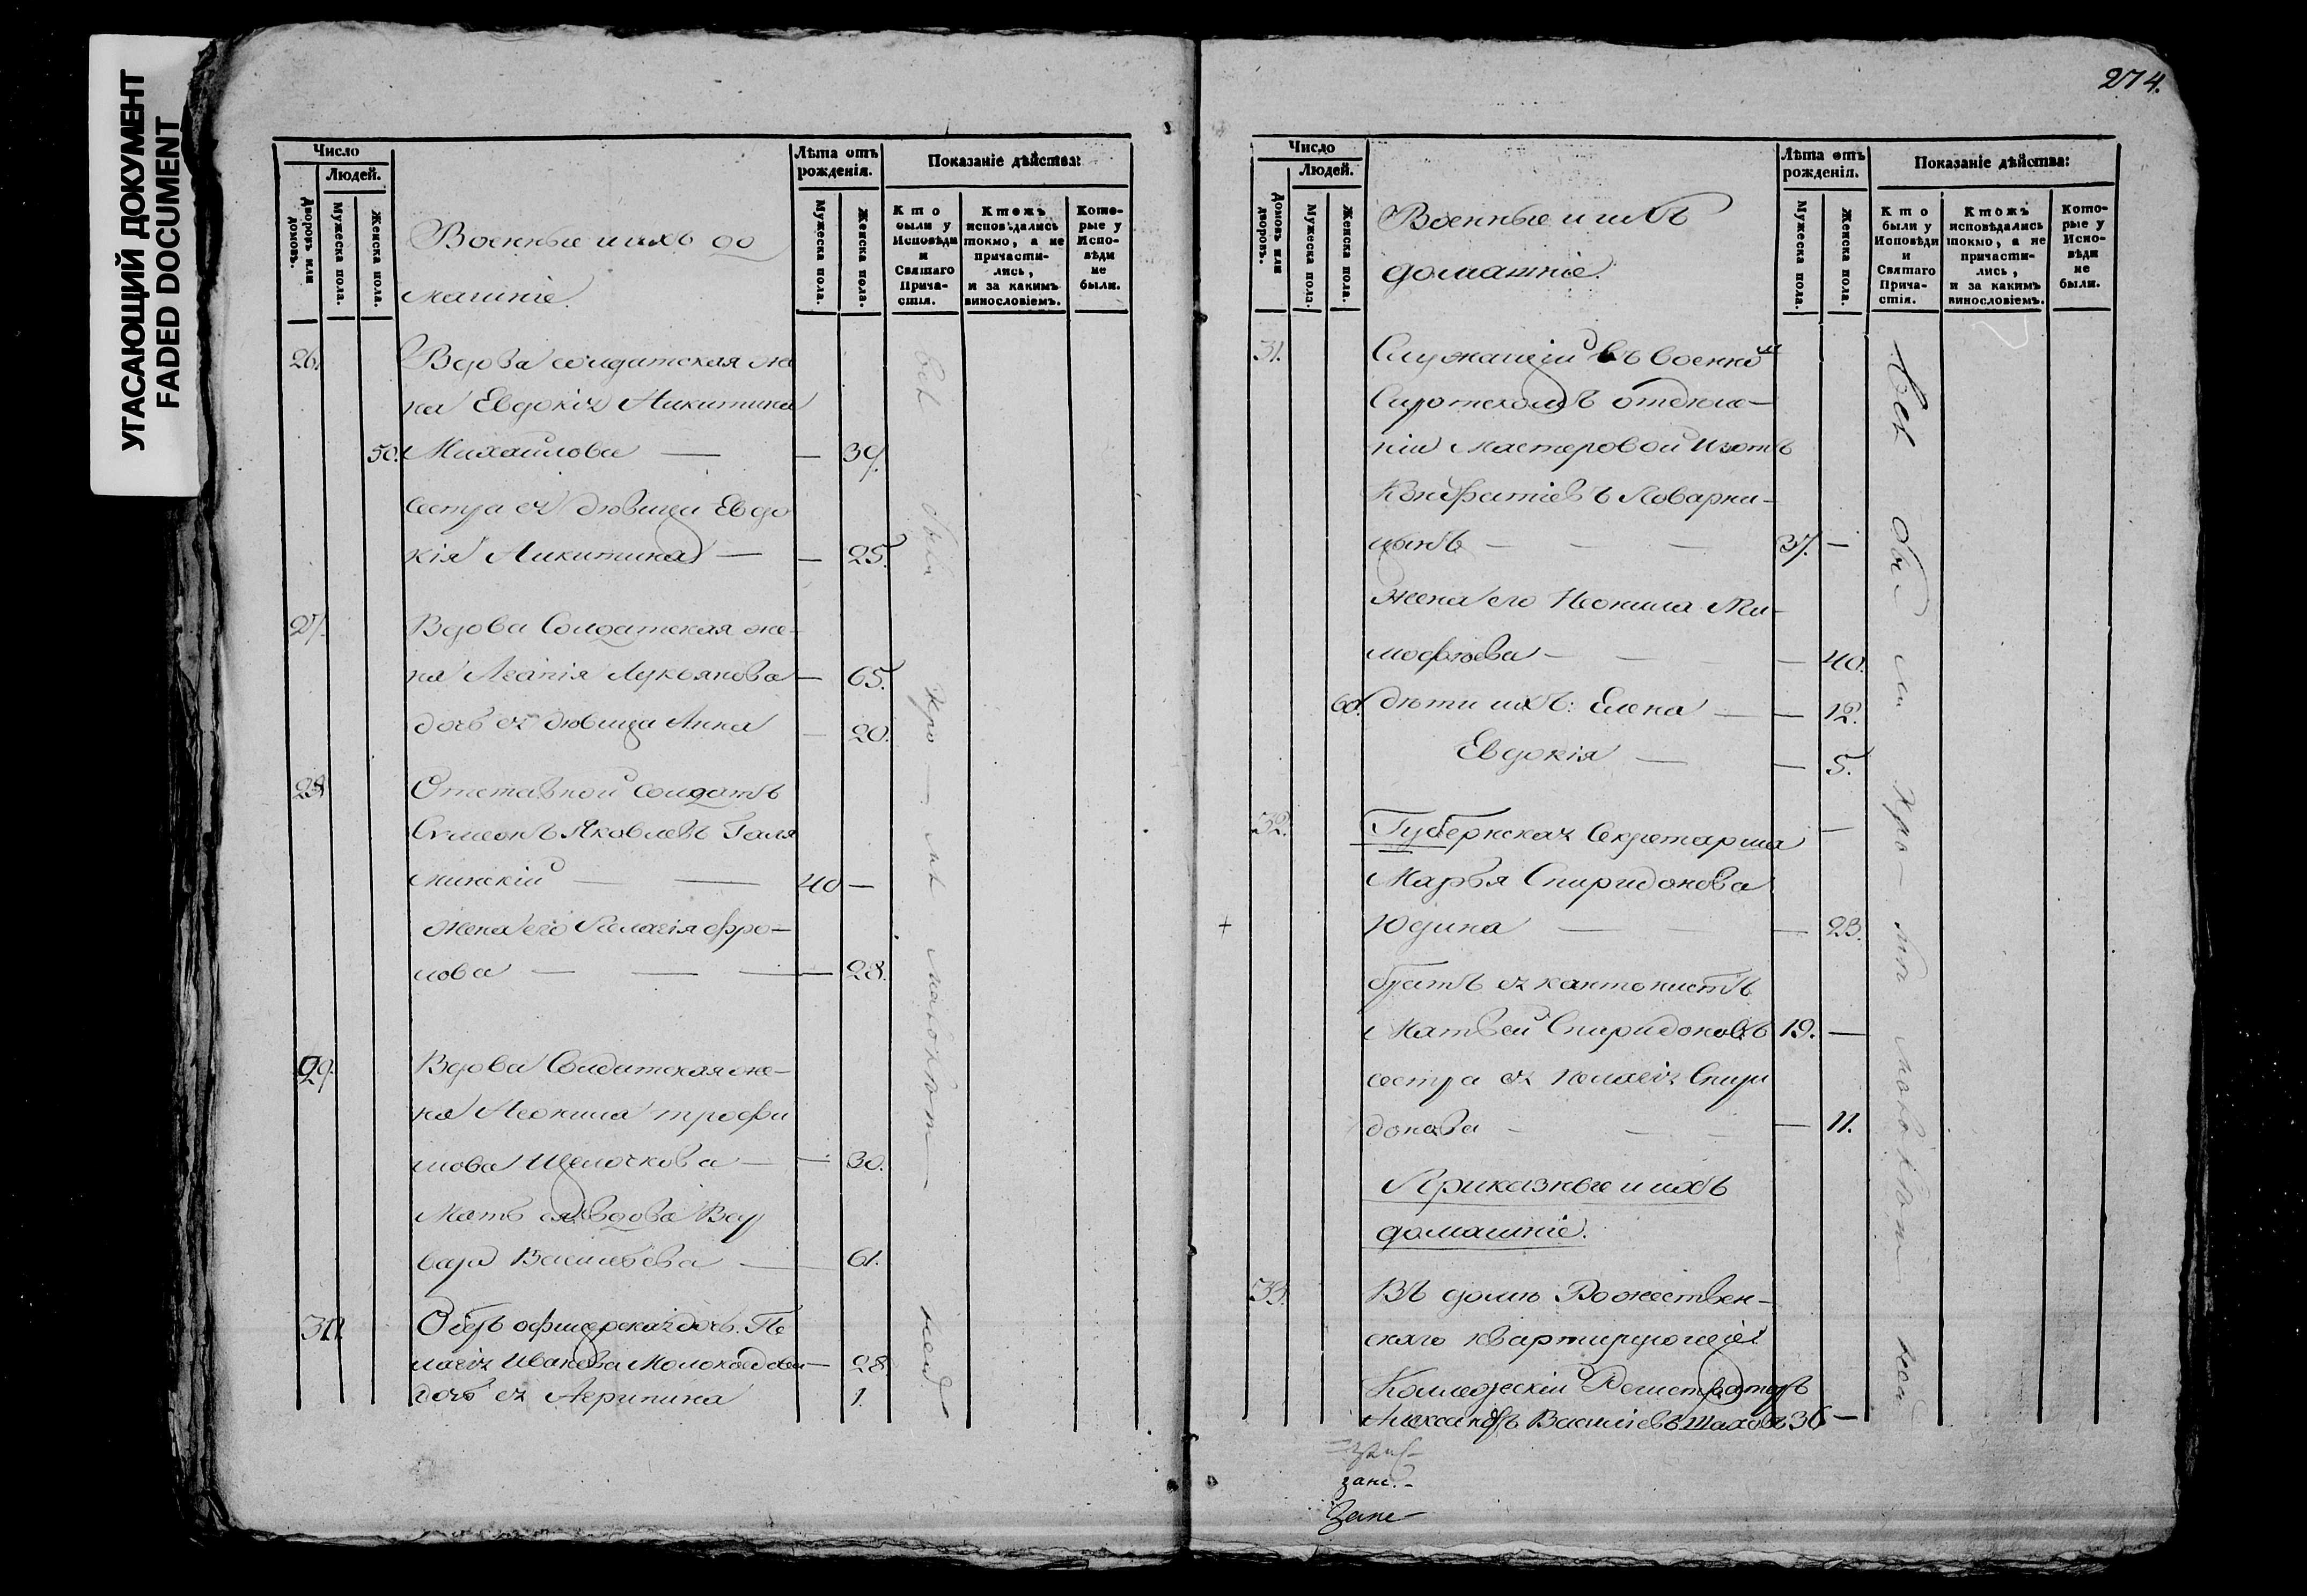 УГАСАЮЩИЙ ДОКУМЕНТ
FADED DOCUMENT
Число
Людей.
Дворовъ или домовъ.
Мужеска пола.
Женска пола.
Военные и ихъ до
машніе.
Лѣта отъ рожденія.
Мужеска пола.
Женска пола.
Показаніе дѣйства:
Кто были у Исповѣди и Святаго Прича-стія.
Ктожъ исповѣдались токмо, а не причасти-лись, и за какимъ винословіемъ.
Кото-рые у Испо-вѣди не были.
26. Вдова солдатская же
на Евдокія Никитина
50. Михайлова — — 39.
сестра ея дѣвица Евдо
кія Никитина — — 25.
27. Вдова Солдатская же-
на Агапія Лукьянова — 65.
дочь ея дѣвица Анна — 20.
28. Отставной солдатъ
Сѵмеонъ Яковлевъ Галя
минскій — — 40 —
жена его Пелагія Фро-
лова — — — 28.
29. Вдова Солдатская же-
на Неонила Трофи
мова Щелочкова — — 30.
Мать ея вдова Вар
вара Васильева — 61.
30. Оберъ офицерская дочь Пе
лагія Иванова Молоко — 28.
дочь ея Агрипина 1.
всѣ были кро — мѣ малолѣт —
274.
Число
Людей.
Домовъ или дворовъ.
Мужеска пола.
Женска пола.
Военные и ихъ
домашніе.
Лѣта отъ рожденія.
Мужеска пола.
Женска пола.
Показаніе дѣйства:
Кто были у Исповѣди и Святаго Прича-стія.
Ктожъ исповѣдались токмо, а не причасти-лись, и за какимъ винословіемъ.
Кото-рые у Испо-вѣди не были.
31. Служащій въ военно
Сиротскомъ отдѣле-
ніи Мастеровой Изотъ
Кондратіевъ Поварни-
цынъ — — — 37. —
жена его Неонила Ти-
мофѣева — — — 40.
60. дѣти ихъ: Елена — — 12.
Евдокія — — 5.
32. Губернская Секретарша —
Марья Спиридонова
+ Юдина — — — 23.
братъ ея кантонистъ
Матвей Спиридоновъ 19. —
сестра ея Пелагія Спири
донова — — — — 11.
Приказные и ихъ
домашніе.
33. Въ домѣ Рожествен-
скаго квартирующіе:
Коллежскій Регистраторъ
Александръ Васильевъ Шаховъ 36 —
Всѣ были кро — мѣ малолѣт